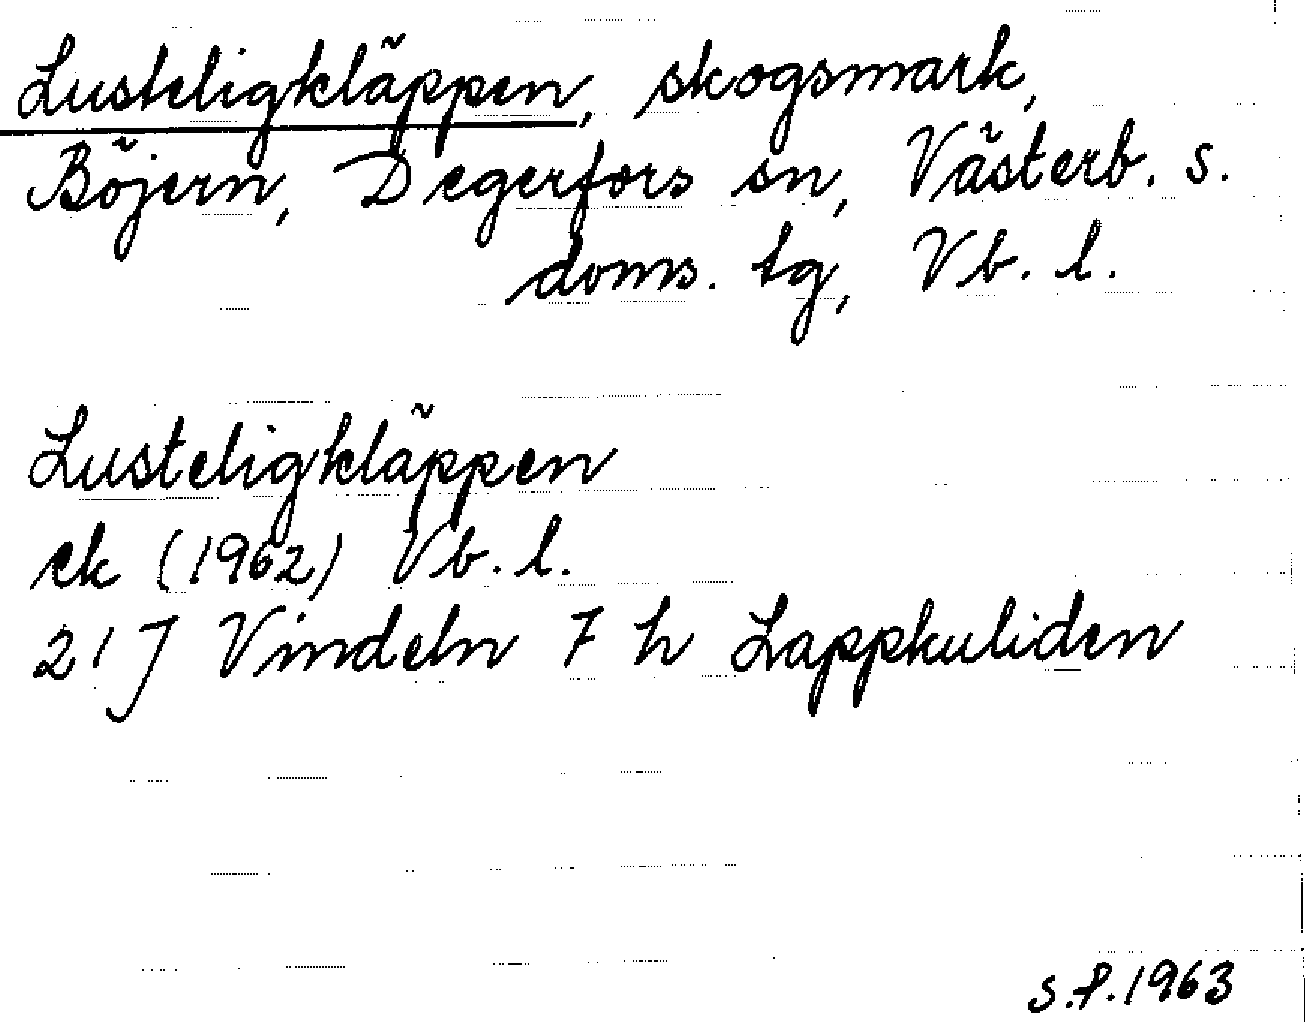 Lusteligkläppen, skogsmark,
Böjern, Degerfors sn, Västerb. s.
doms. tg, Vb. l.
Lusteligkläppen
ek (1962) Vb. l.
21 J Vindeln 7 h Lappkuliden
s.f. 1963